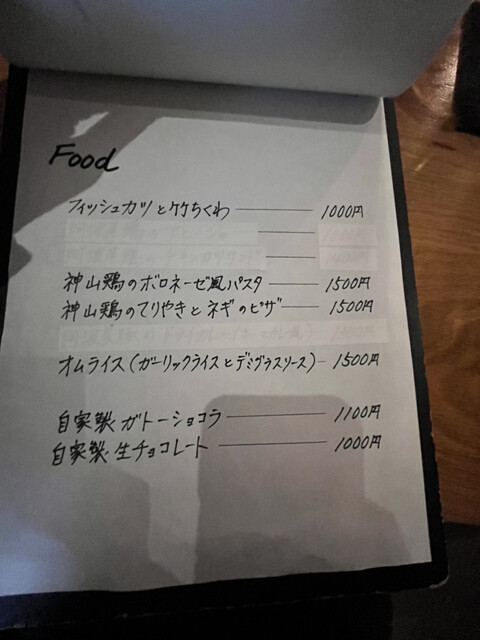 Food
フィッシュカツと竹ちくわ ——— 1000円
神山鶏のボロネーゼ風パスタ ——— 1500円
神山鶏のてりやきとネギのピザ ——— 1500円
オムライス(ガーリックライスとデミグラスソース) — 1500円
自家製 ガトーショコラ ——— 1100円
自家製 生チョコレート ——— 1000円